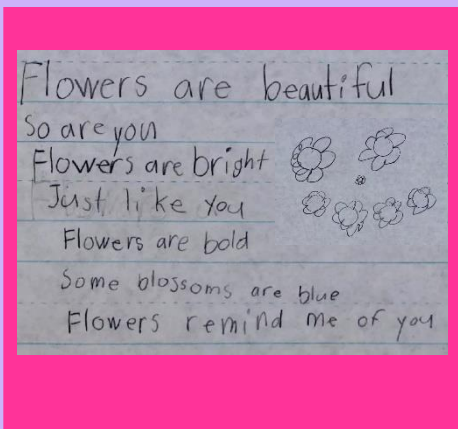 Flowers are beautiful
So are you
Flowers are bright
Just like you
Flowers are bold
Some blossoms are blue
Flowers remind me of you